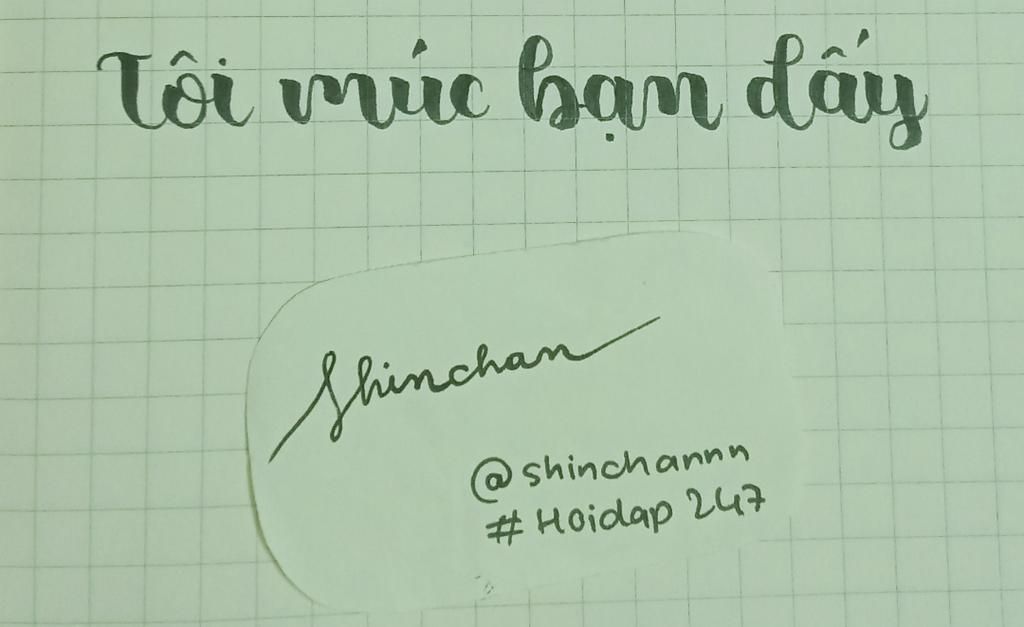 Tôi múc bạn đấy
Shinchan
@shinchannn
#Hoidap 247